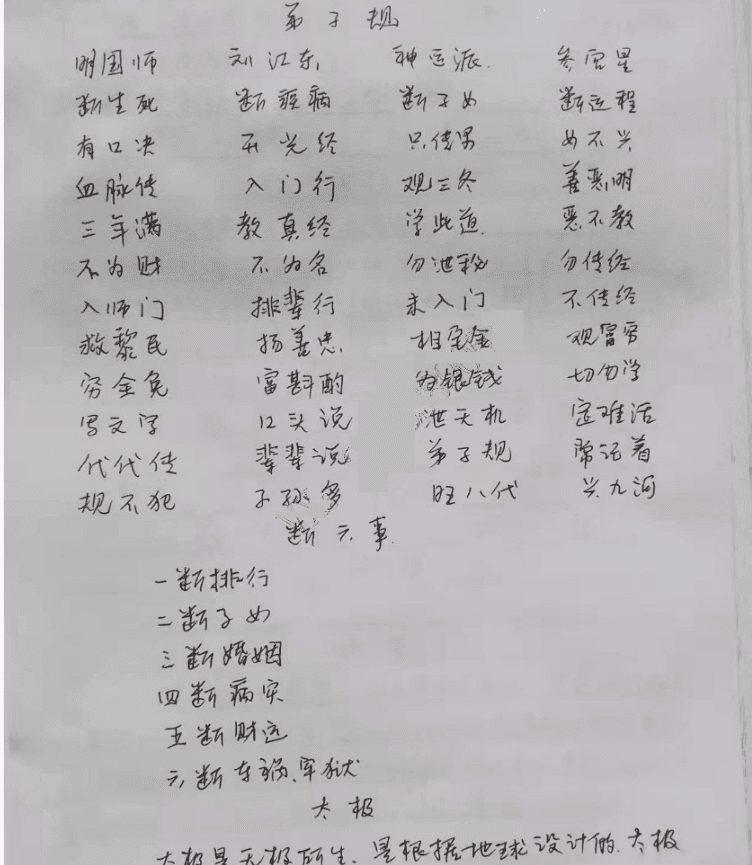 弟子规
明国师 刘江东 神运派 参宫星
断生死 断疾病 断子女 断运程
有口决 开光经 只传男 女不兴
血脉传 入门行 观三冬 善恶明
三年满 教真经 学此道 恶不教
不为财 不为名 勿泄秘 勿传经
入师门 排辈行 未入门 不传经
救黎民 扬善忠 相宅金 观富穷
穷金免 富斟酌 为银钱 切勿学
写文字 口头说 泄天机 定难活
代代传 辈辈说 弟子规 常记着
规不犯 子孙多 旺八代 兴九河
断六事
一断排行
二断子女
三断婚姻
四断病灾
五断财运
六断车祸.牢狱
太极
太极是无极所生.是根据地球设计的.太极